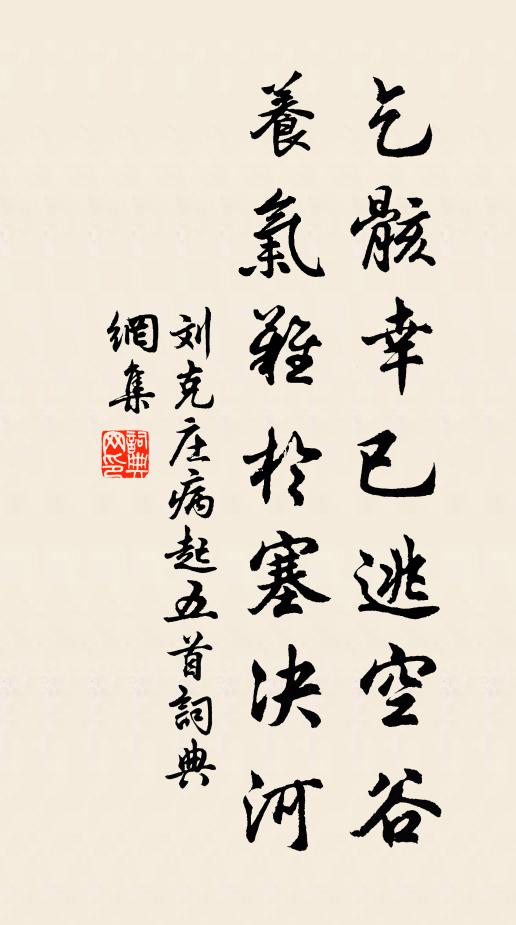 乞骸幸已逃空谷
養氣難於塞決河
刘克庄病起五首詞典
網集
詞典網印